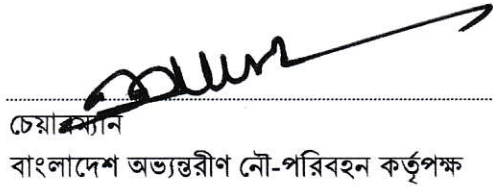 চেয়ারম্যান
বাংলাদেশ অভ্যন্তরীণ নৌ-পরিবহন কর্তৃপক্ষ